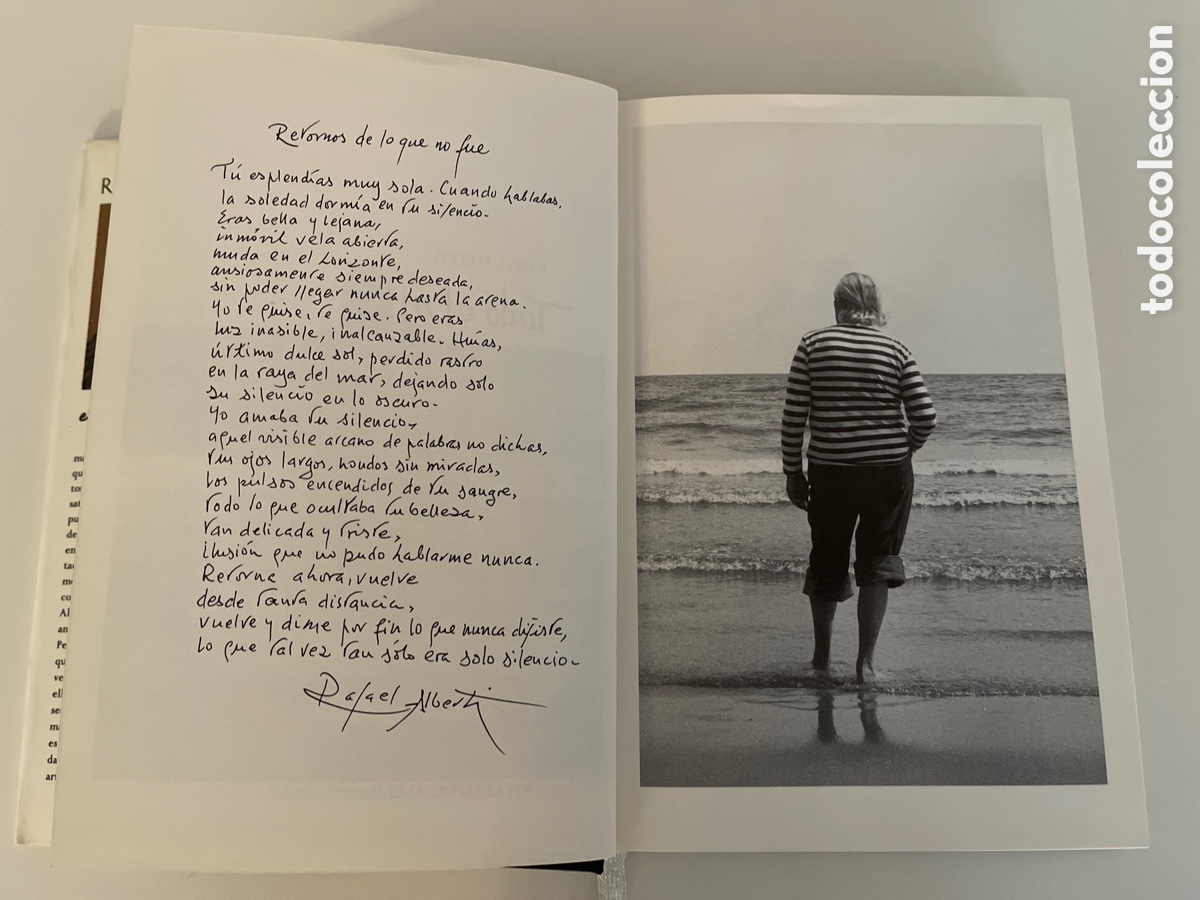 Retornos de lo que no fue
Tú esplendías muy sola. Cuando hablabas,
la soledad dormía en tu silencio.
Eras bella y lejana,
inmóvil vela abierta,
muda en el horizonte,
ansiosamente siempre deseada,
sin poder llegar nunca hasta la arena.
Yo te quise, te quise. Pero eras
luz inasible, inalcanzable. Huías,
último dulce sol, perdido rastro
en la raya del mar, dejando solo
su silencio en lo oscuro.
Yo amaba tu silencio,
aquel visible arcano de palabras no dichas,
tus ojos largos, hondos sin miradas,
los pulsos encendidos de tu sangre,
todo lo que ocultaba tu belleza,
tan delicada y triste,
ilusión que no pudo hablarme nunca.
Retorna ahora, vuelve
desde tanta distancia,
vuelve y dime por fin lo que nunca dijiste,
lo que tal vez tan sólo era solo silencio.
Rafael Alberti
R
ma
qu
to
sat
pu
de
en
ta
me
co
Al
an
Pe
qu
ve
ell
se
m
es
da
art
todocoleccion